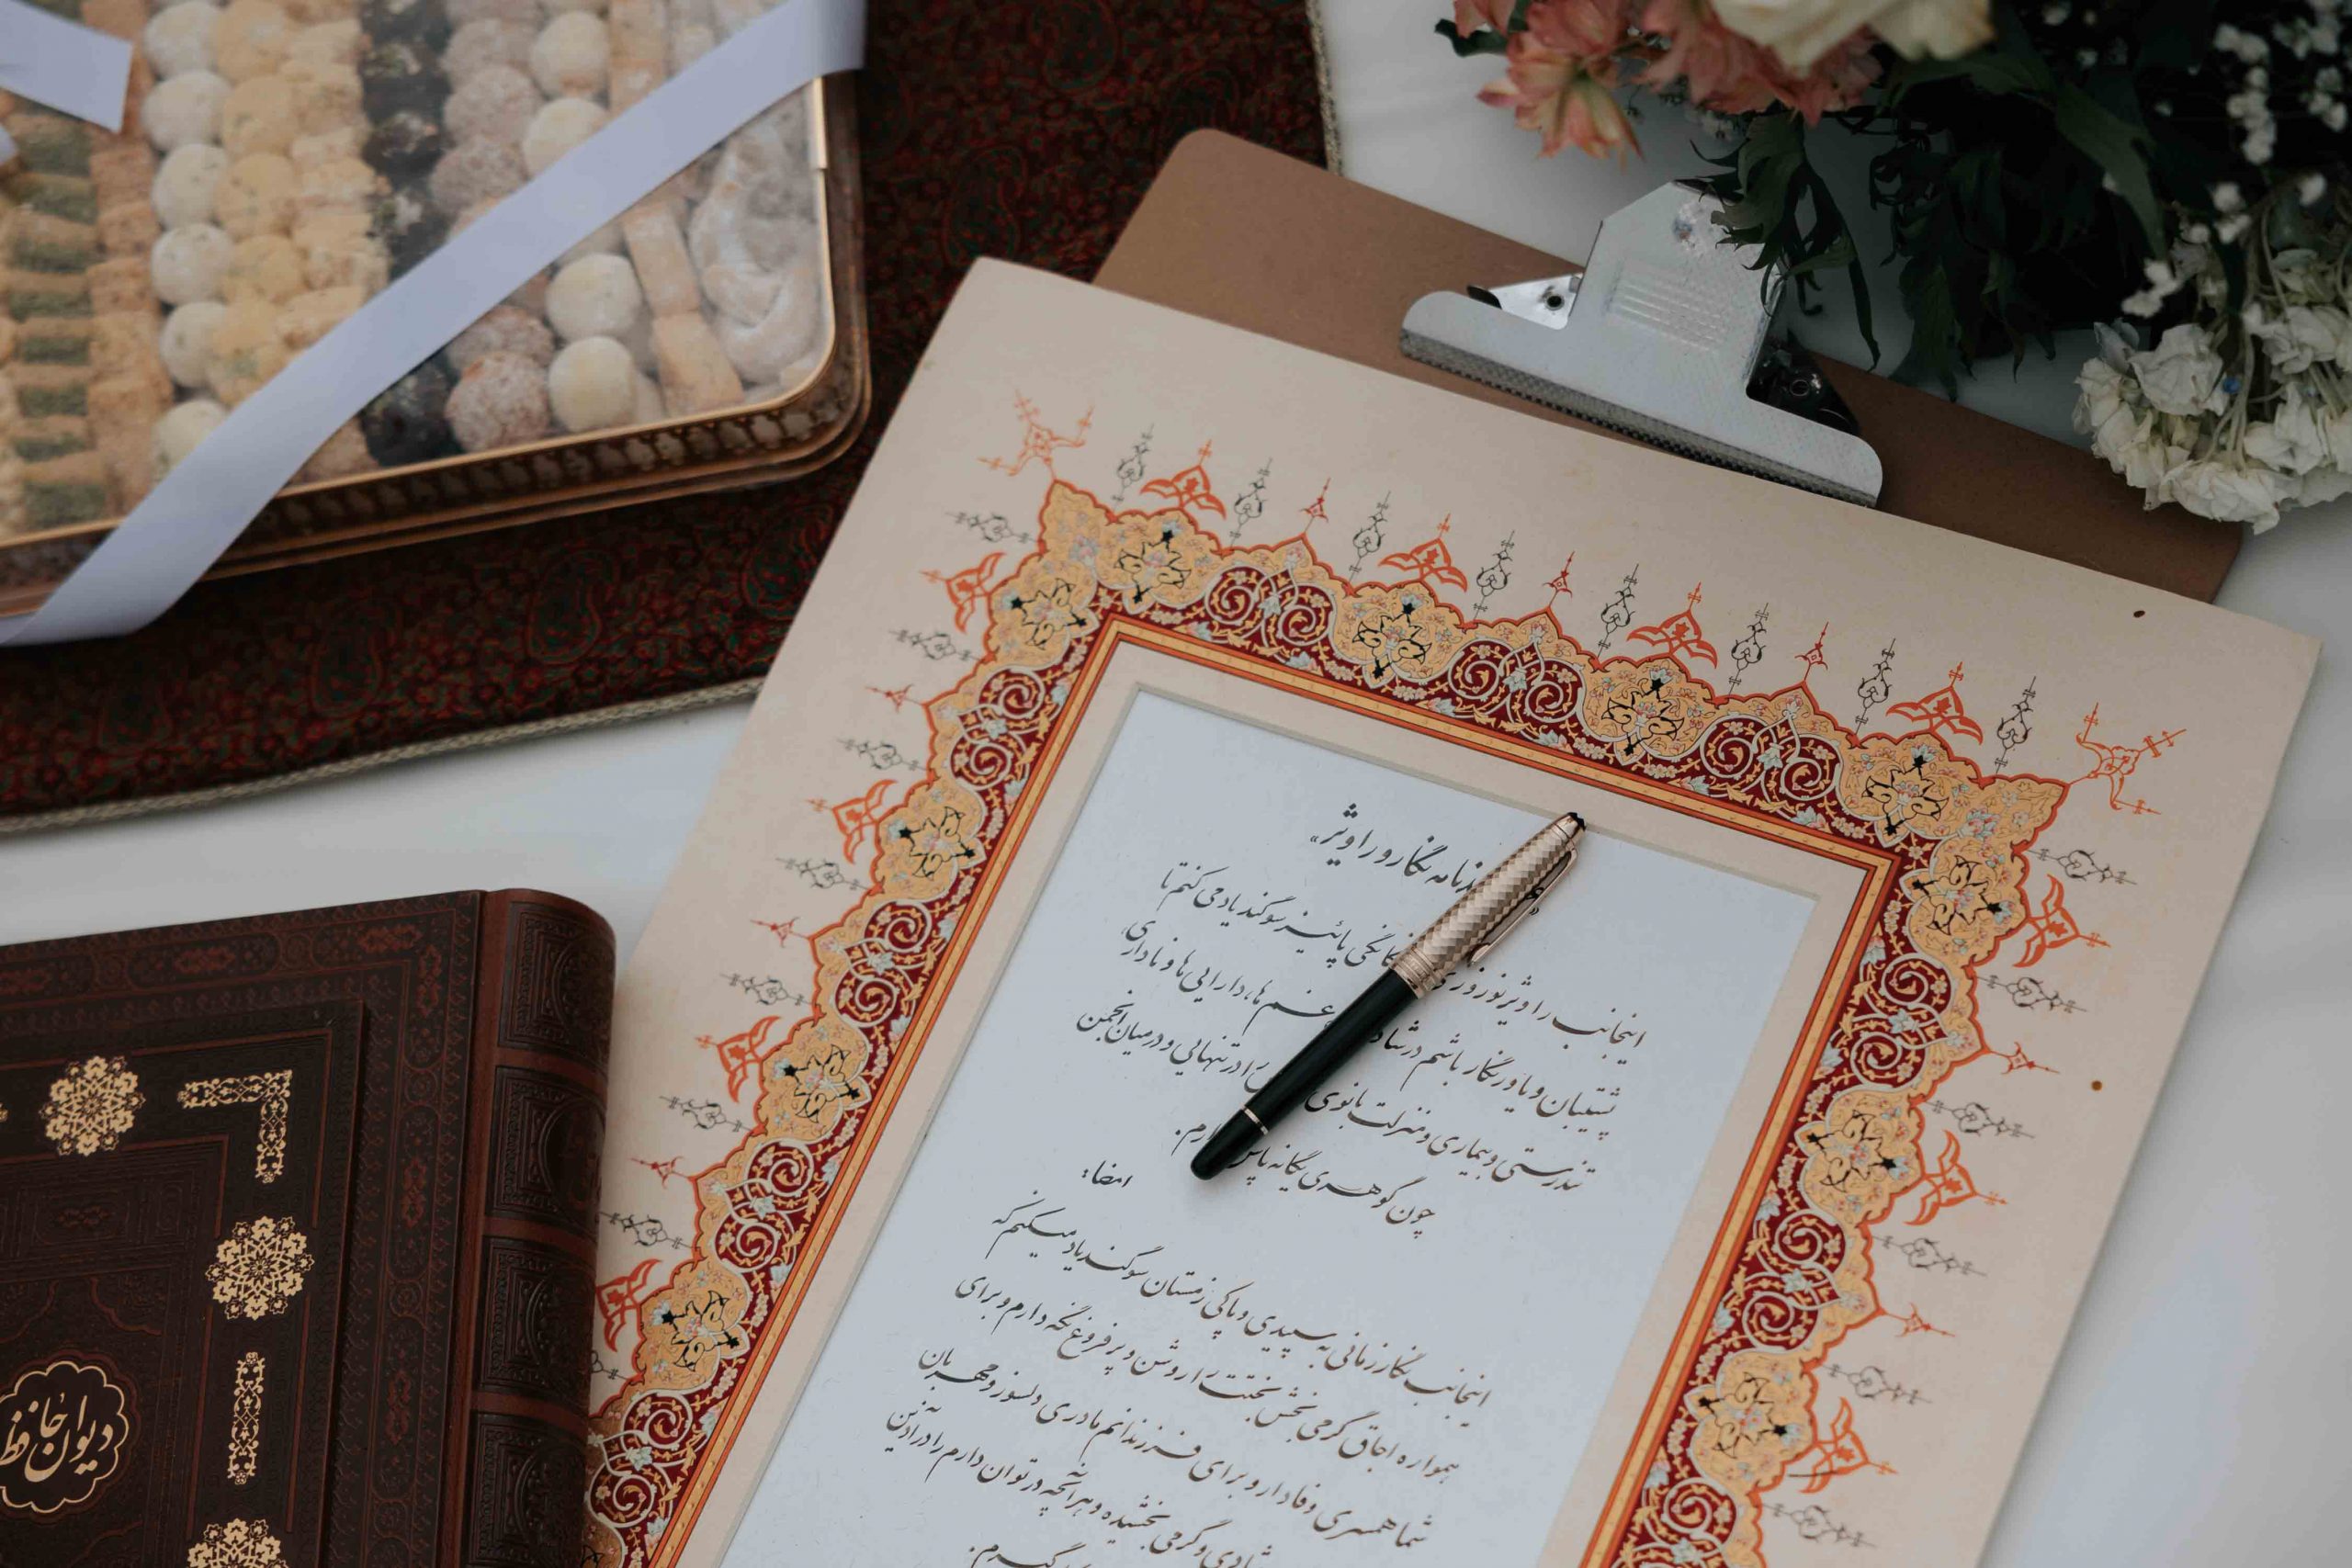 نگار و راویژ»
اینجانب راویژ نوروزی پائیز سوگند یاد می کنم تا
پشتیبان و یاور نگار باشم در غم ها، دارایی ها و نداری
تندرستی و بیماری و منزلت بانوی را در تنهایی و در میان انجمن
چون گوهری یگانه
امضاء:
اینجانب نگار زمانی به سپیدی و پاکی زمستان سوگند یاد میکنم که
همواره اجاق گرمی بخش را روشن و پر فروغ نگه دارم و برای
شما همسری وفادار و برای فرزندانم مادری دلسوز و مهربان
شادی و گرمی بخشیده و هر آنچه در توان دارم را در این
دیوان حافظ